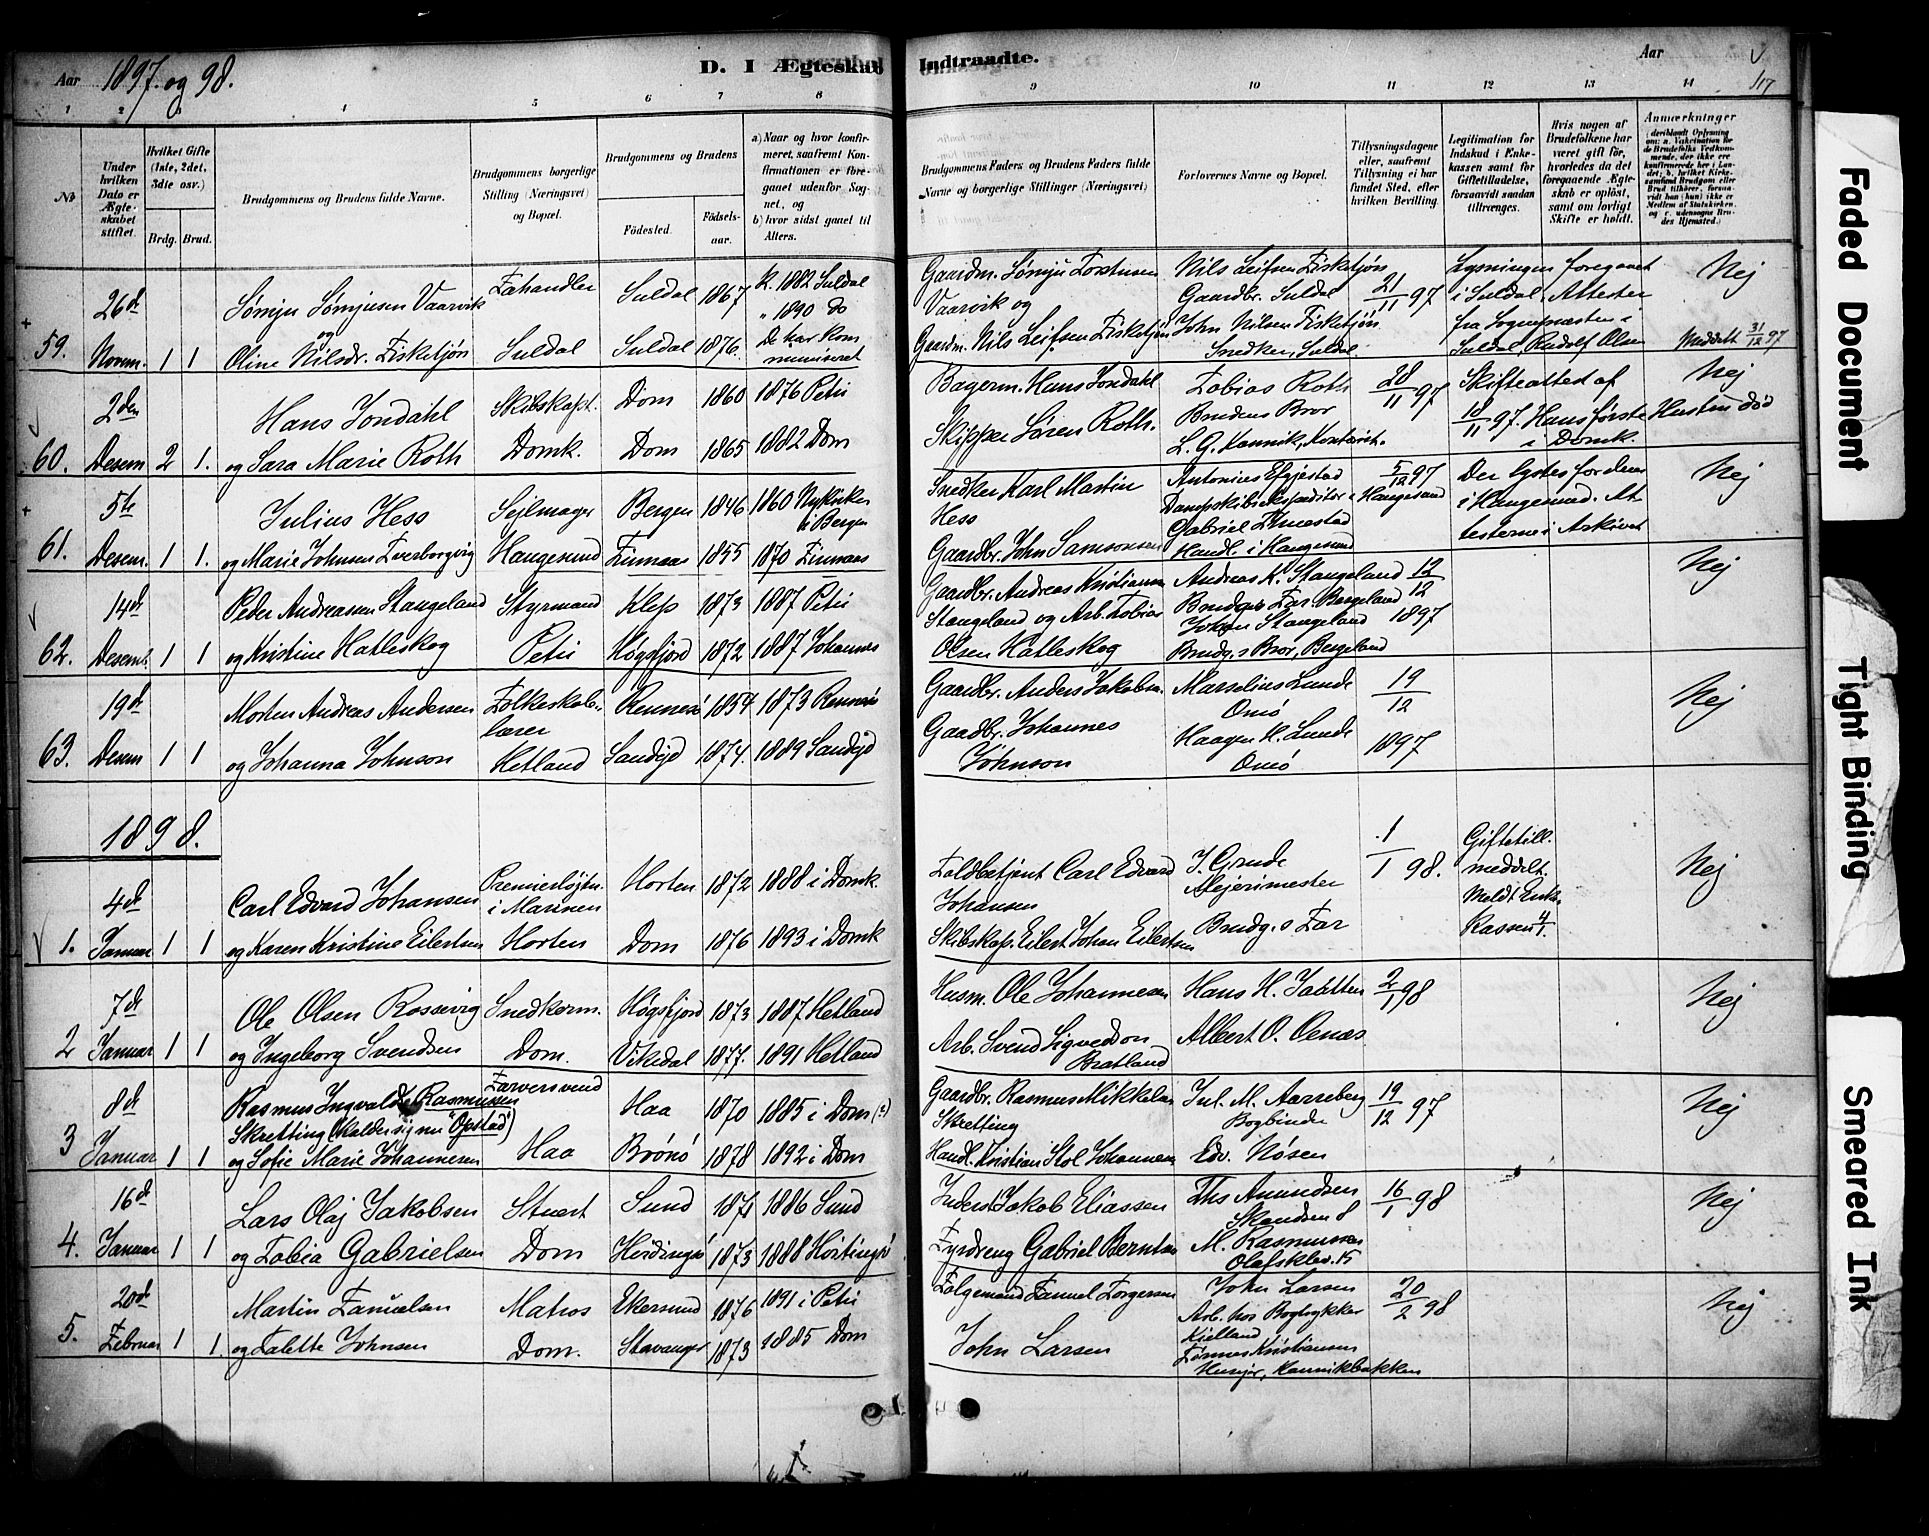 Aar 1897 og 98.
D. I Ægteskab Indtraadte.
Aar
117
1 2 4 5 6 7 8 9 10 11 12 13 14
No
Under hvilken Dato er Ægteskabet stiftet.
Hvilket Gifte (1ste, 2det, 3die osv.)
Brdg. Brud.
Brudgommens og Brudens fulde Navne.
Brudgommens borgerlige Stilling (Næringsvei) og Bopæl.
Brudgommens og Brudens
Fødested.
Fødselsaar.
a) Naar og hvor konfirmeret, saafremt Konfirmationen er foregaaet udenfor Sognet, og
b) hvor sidst gaaet til Alters.
Brudgommens Faders og Brudens Faders fulde Navne og borgerlige Stillinger (Næringsvei)
Forlovernes Navne og Bopæl.
Tillysningsdagene eller, saafremt Tillysning ei har fundet Sted, efter hvilken Bevilling.
Legitimation for Indskud i Enkekassen samt for Giftetilladelse, forsaavidt saadan tiltrænges.
Hvis nogen af Brudefolkene har været gift før, hvorledes da det foregaaende Ægteskab er opløst, samt om lovligt Skifte er holdt.
Anmærkninger
59. 26de Novem. 1 1
Sømju Sømjusen Vaarvik
og
Oline Nilsdr. Fisketjøn
Fæhandler
Suldal
Suldal 1867
Suldal 1876.
k. 1882 Suldal
" 1890 do
De har kommuniceret
Gaardm. Sømju Torstensen Vaarvik og
Gaardm. Nils Leifsen Fisketjøn
Nils Leifsen Fisketjøn
Gaardbr. Suldal
John Nilsen Fisketjøn
Snedker, Suldal
21/11 97
Lysningen foregaaet
i Suldal. Attester
fra Sognepræsten i
Suldal, Rudolf Olsen
Nej
Meddelt 31/12 97
60. 2den Desem 2 1.
Hans Jondahl
og Sara Marie Roth
Skibskapt.
Domk.
Dom 1860
Dom 1865
1876 Petri
1882 Dom
Bagerm. Hans Jondahl
Skipper Søren Roth.
Tobias Roth
Brudens Bror
L. G. Kannik, Kontorist.
28/11 97
Skifteattest af
18/11 97. Hans første Hustru død
i Domk.
Nej
61. 5te Desem. 1 1.
Julius Hess
og Marie Johnsen Tverborgvig
Sejlmager
Haugesund
Bergen 1846
Finnaas 1855
1860 Nykirken
i Bergen
1870 Finnaas
Snedker Karl Martin
Hess
Gaardbr. John Samsonsen
Antonius Egjestad
Dampskibsekspeditør i Haugesund
Gabriel Timestad
Handl. i Haugesund
5/12 97
Der lystes for dem
i Haugesund. Attesterne i Arkivet
Nej
62. 14de Desemb. 1 1
Peder Andreasen Stangeland
og Kristine Hatleskog
Styrmand
Petri
Klep 1873
Høgsfjord 1872
1887 Petri
1887 Johannes
Gaardbr. Andreas Kristiansen
Stangeland og Arb. Tobias
Olsen Hatleskog
Andreas K. Stangeland
Brudgs Far, Bergeland
Johan Stangeland
Brudg.s Bror, Bergeland
12/12
1897
Nej
63. 19de Desem 1 1
Morten Andreas Andersen
og Johanna Johnson
Folkeskolelærer
Hetland
Rennesø 1854
Sandejd 1874.
1873 Rennesø
1889 Sandejd
Gaardbr. Anders Jakobsen.
Gaardbr. Johannes
Johnson
Marselius Lunde
Omø
Haagen H. Lunde
Omø
19/12
1897
Nej
1898.
1. 4de Januar 1 1
Carl Edvard Johansen
og Karen Kristine Eilertsen
Premierløjtn.
i Marinen
Horten
Horten 1872
Dom 1876
1888 i Domk.
1893 i Domk
Toldbetjent Carl Edvard
Johansen
Skibskap. Eilert Johan Eilertsen
J. Grude
Mejerimester
Brudg.s Far
1/1 98.
Giftetill.
meddelt.
Meldt Enkekassen 4/1.
Nej
2 7de Januar 1 1
Ole Olsen Rossevig
og Ingeborg Svendsen
Snedkerm.
Dom.
Høgsfjord 1873
Vikedal 1877.
1887 Hetland
1891 Hetland
Husm. Ole Johannesen
Arb. Svend Sigvedson
Bratland
Hans H. Jaatten
Albert O. Oenæs
2/1 98
Nej
3 8de Januar 1 1
Rasmus Ingvald Rasmussen
Skretting (kalder sig nu "Opstad")
og Sofie Marie Johannesen
Farversvend
Haa
Haa 1870
Brønø 1878
1885 i Dom (?)
1892 i Dom
Gaardbr. Rasmus Mikkelsen
Skretting
Handl. Kristian Stol Johannesen
Jul. M. Aarreberg
Bogbinder
Edv. Nøsen
19/12 97
Nej
4. 16de Januar 1 1
Lars Olaj Jakobsen
og Tobia Gabrielsen
Stuert
Dom
Sund 1871
Hærdingsø 1873
1886 Sund
1888 Hortingsø
Inderst Jakob Eliassen
Fyrdreng Gabriel Berntsen
Ths Amundsen
Skandsen 8
M. Rasmussen
Olafsklev. 15
16/1 98
Nej
5. 20de Februar 1 1.
Martin Samuelsen
og Talette Johnsen
Matros
Dom.
Ekersund 1876
Stavanger 1873
1891 i Petri
1885 Dom
Følgemand Samuel Torgersen
John Larsen
John Larsen
Arb. hos Bogtrykker
Kielland
Tønnes Kristiansen
Husejer, Kannikbakken
20/2 98
Nej
Faded Document
Tight Binding
Smeared Ink